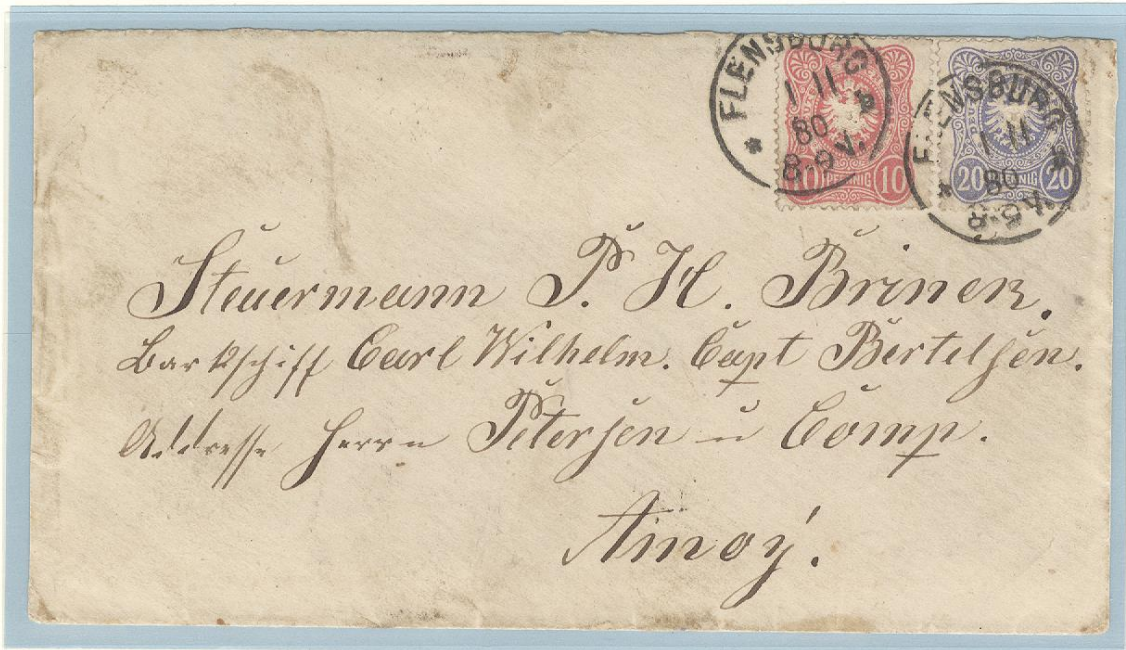 FLENSBURG
1 11
80
8-9 V.
10 PFENNIG 10
FLENSBURG
1 11
80
8-9 V.
20 PFENNIG 20
Steuermann P. H. Brinen.
Barkschiff Carl Wilhelm. Capt Bertelsen.
Addresse Herrn Petersen u Comp.
Amoy.